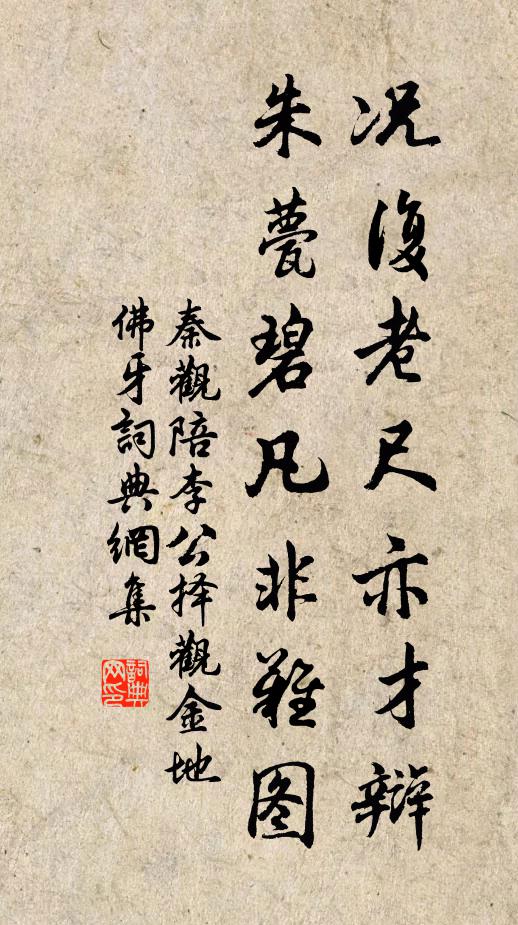 况復老尺亦才辯
朱甍碧凡非難图
秦觀陪李公择觀金地
佛牙詞典網集
詞典
网印